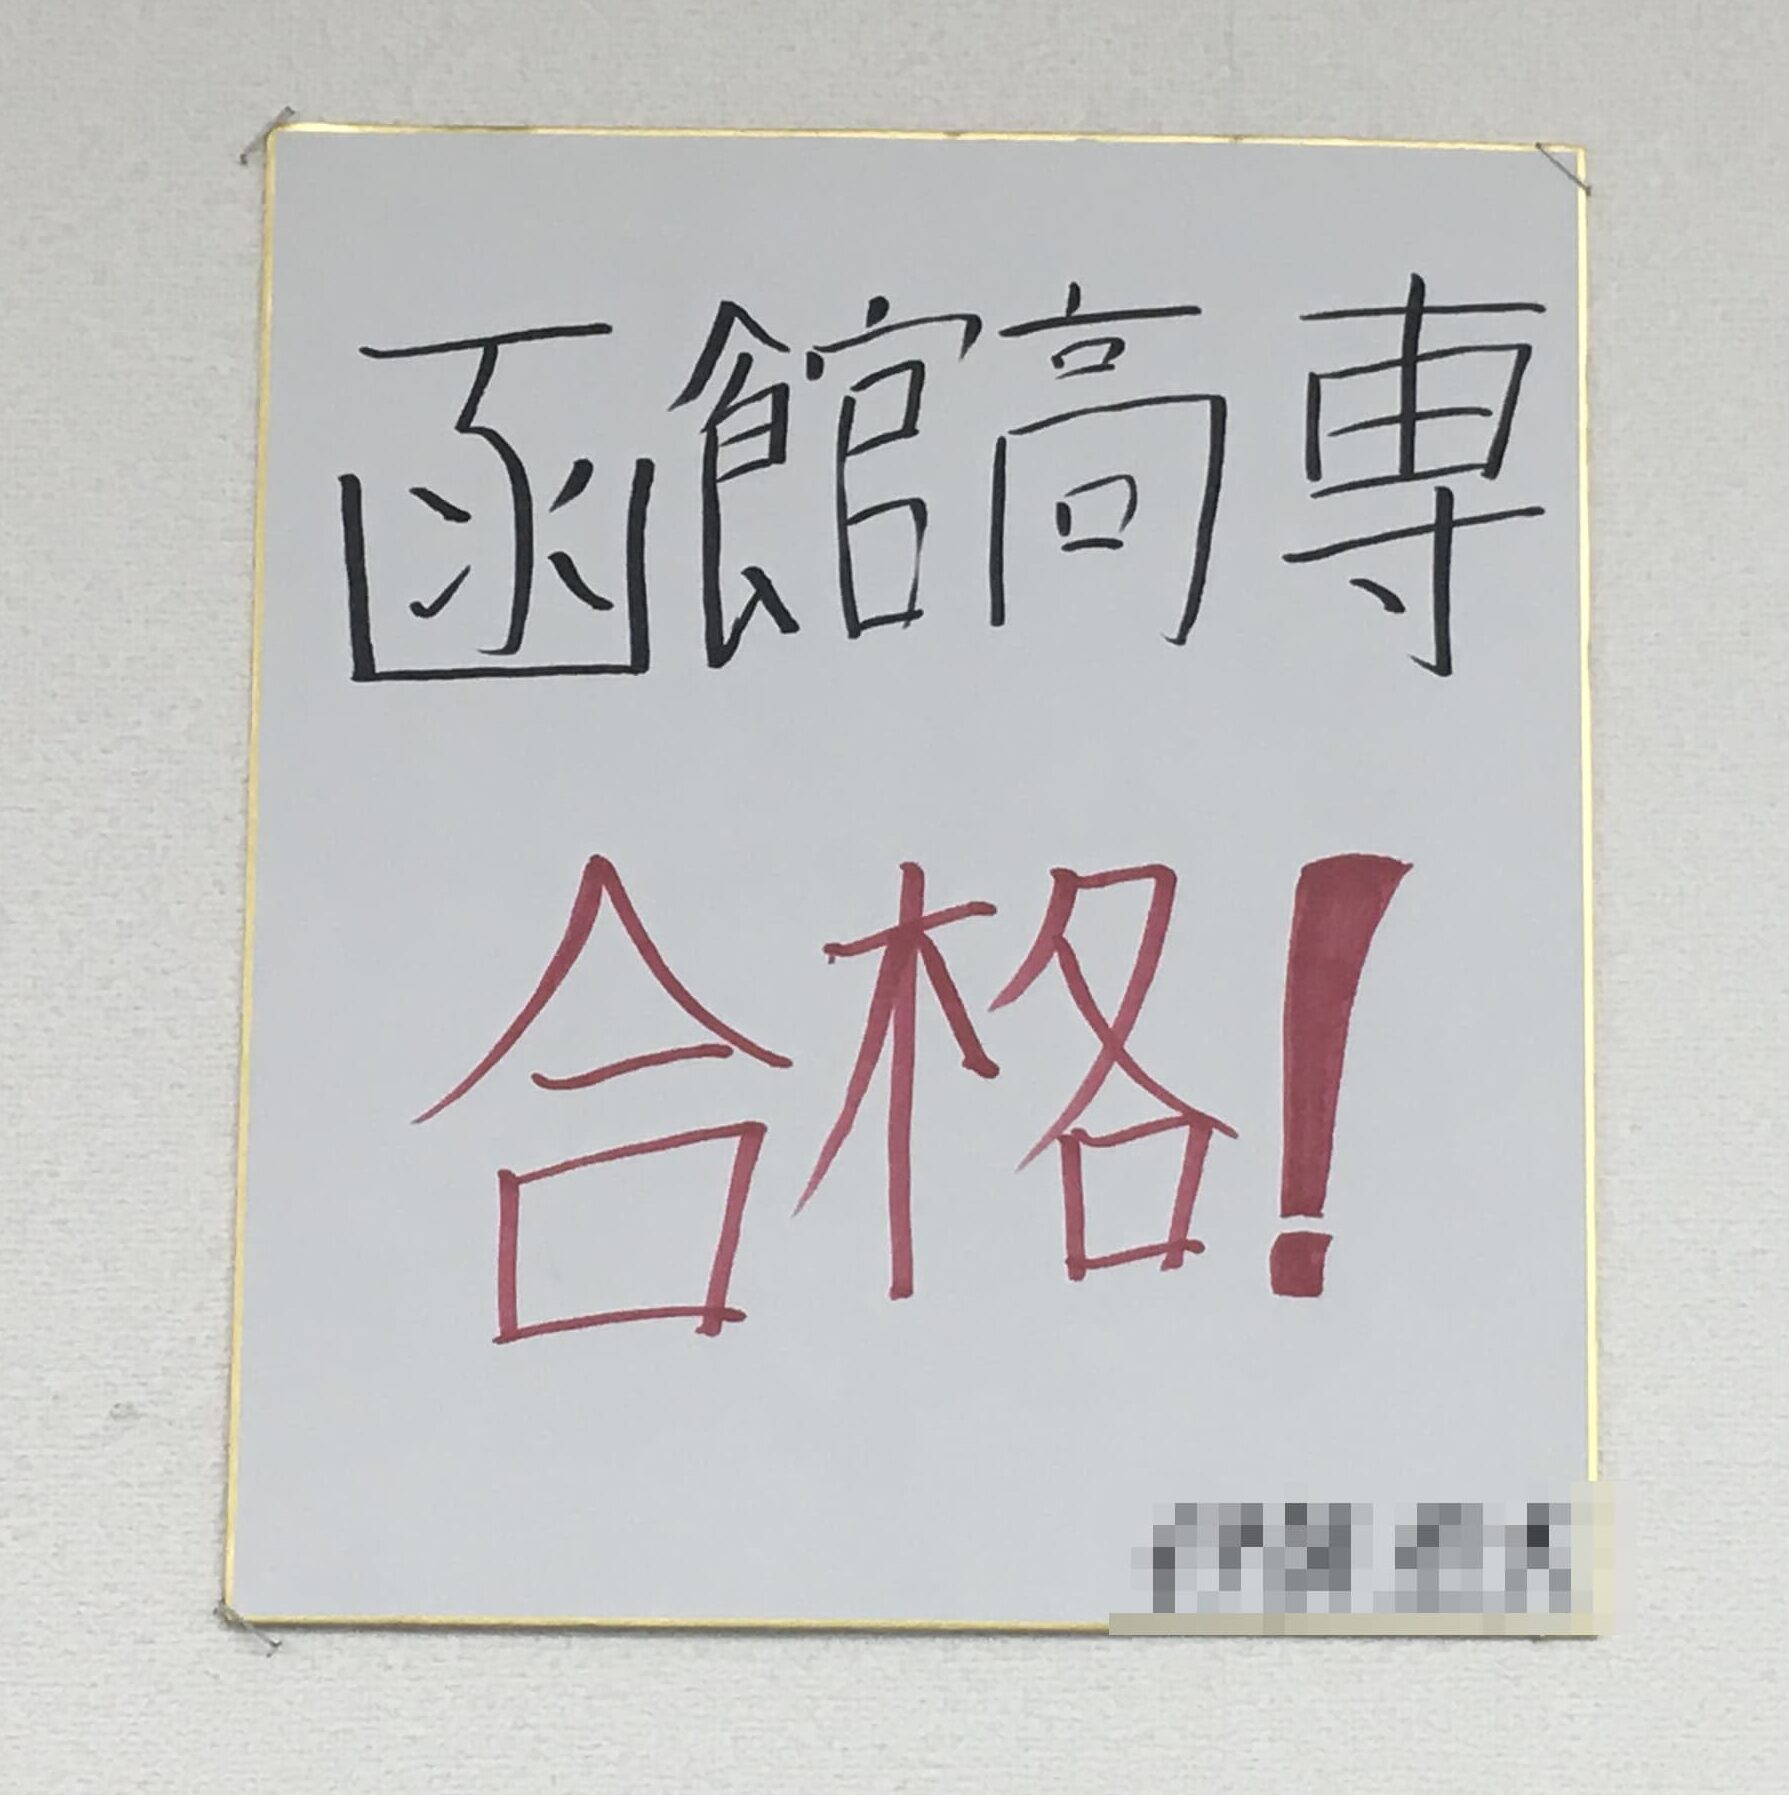 函館高専
合格!